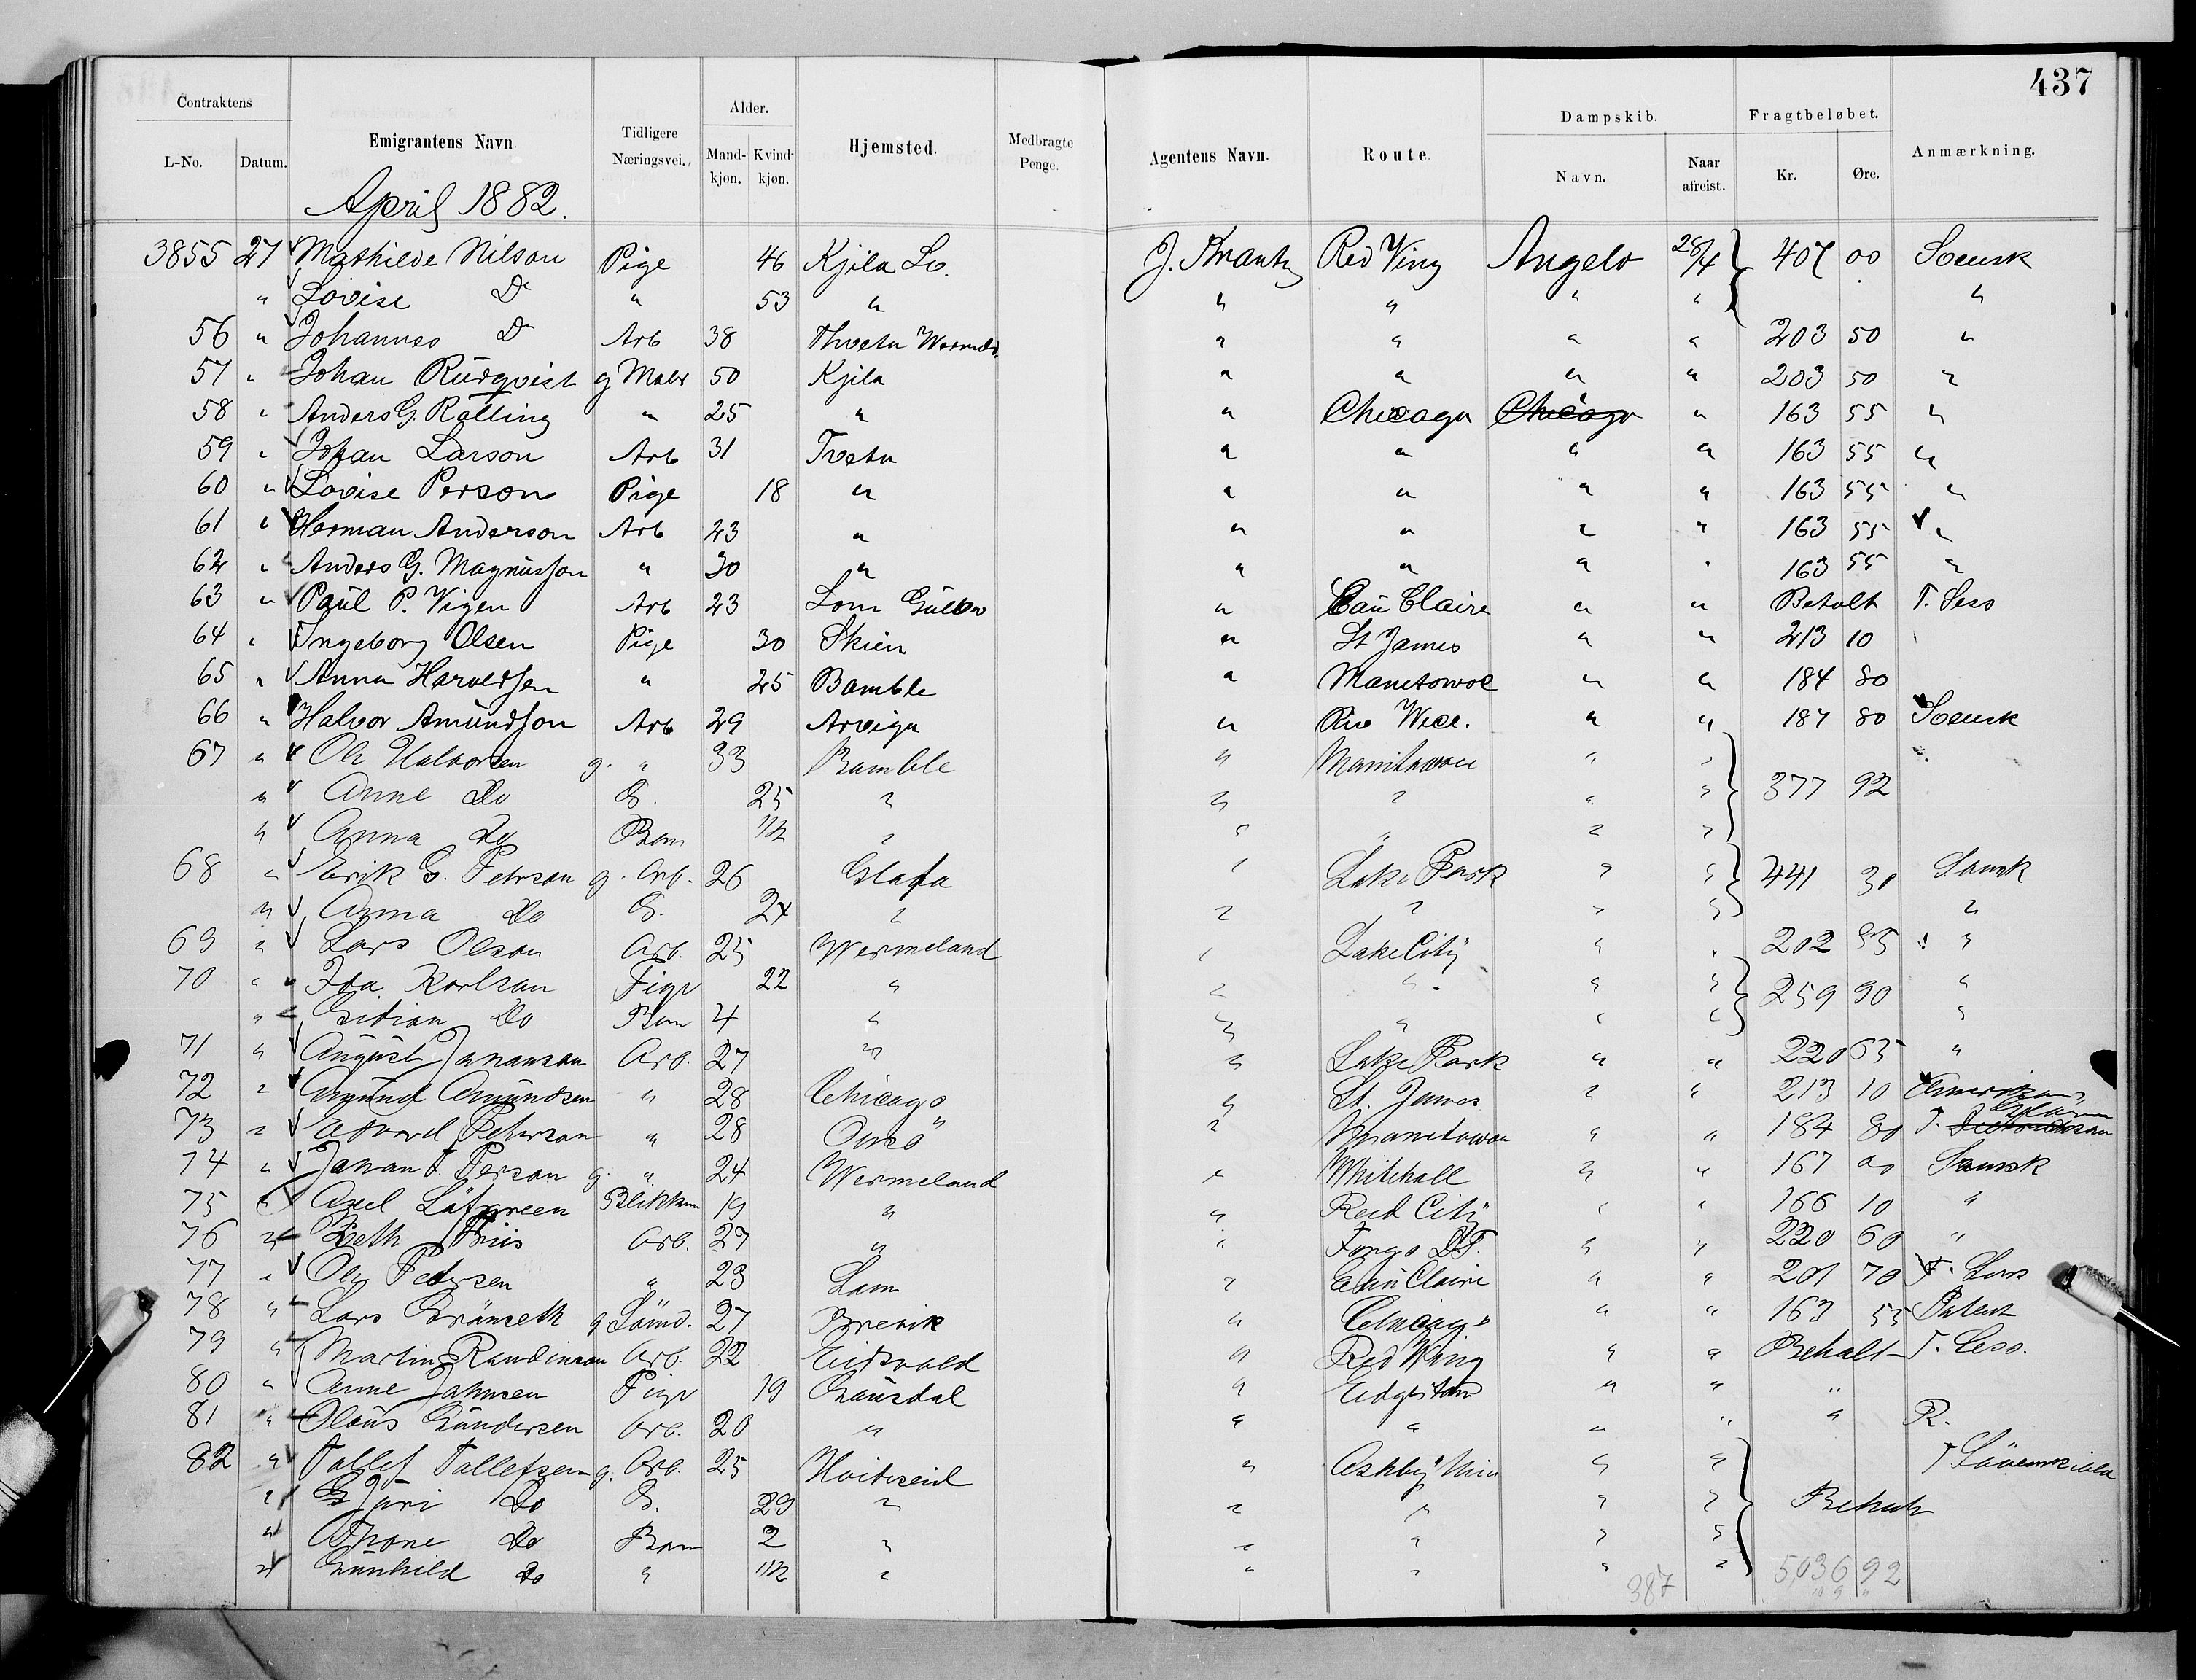 437
Contraktens Emigrantens Navn Tidligere Næringsvei. Alder. Hjemsted. Medbragte Penge. Agentens Navn. Route. Dampskib. Fragtbeløbet. Anmærkning.
L-No. Datum. Mandkjøn. Kvindkjøn. Navn. Naar afreist. Kr. Øre.
April 1882.
3855 27 Mathilde Nilson Pige 46 Kjila J. Krantz Red Ving Angelo 28/4 407 00 Svensk
" Lovise Do " 53 " " " " " "
56 " Johannes Do Arb 38 " " " " 203 50 "
57 " Johan g Maler 50 Kjila " " " " 203 50 "
58 " Anders G. Rölling " 25 " " Chicago Chicago " 163 55 "
59 " Johan Larson Arb 31 Tveta " " " " 163 55 "
60 " Lovise Person Pige 18 " " " " " 163 55 "
61 " Herman Anderson Arb 23 " " " " " 163 55 "
62 " Anders G. Magnusson " 30 " " " " " 163 55 "
63 " Paul P. Vigen Arb 23 Lom " Eau Claire " " Betalt T. Less
64 " Ingeborg Olsen Pige 30 Skien " St James " " 213 10
65 " Anna Harvedsen " 25 Bamble " Manetowoc " " 184 80
66 " Halvor Amundson Arb 29 Arviga " Rio " " 187 80 Svensk
67 " Ole Halvorsen g. " 33 Bamble " Manitowoc " " 377 92
" Anne Do G. 25 " " " " "
" Anna Do Barn " " " " "
68 " Erik G. Peterson g. Arb. 26 Glafa " Lake Park " " 441 30 Svensk
" Anna Do G. 24 " " " " " "
69 " Lars Olson Arb. 25 Wermeland " Lake City " " 202 95 "
70 " Ida Karlson Pige 22 " " " " " 259 90 "
" Do Barn 4 " " " " " "
71 " August Johanson Arb. 27 " " Lake Park " " 220 65 "
72 " Amund Amundsen " 28 Chicago " St. James " " 213 10
73 " Edvard Peterson " 28 " Manetowoc " " 184 80 T.
74 " Johan F. Person g. " 24 Wermeland " Whitehall " " 167 00 Svensk
75 " Axel Löfgreen 19 " " Reed City " " 166 10 "
76 " Arb. 27 " " Fargo D.T. " " 220 60 "
77 " Ole Pedersen " 23 Lom " Eau Claire " " 201 70
78 " Lars g 27 Brevik " Chicago " " 163 55 Patent
79 " Martin Arb. 22 Eidsvold " Red Wing " " Betalt T. Less.
80 " Anne Johnsen Pige 19 Gausdal " " " "
81 " Olaus Gundersen Arb. 20 " " " " " " R.
82 " Tallef Tallefsen g. Arb. 25 " Ashby Min " " Betalt
" Do G. 29 " " " " "
" Do Barn 2 " " " " "
" Gunhild Do " " " " " "
387 5,036 92